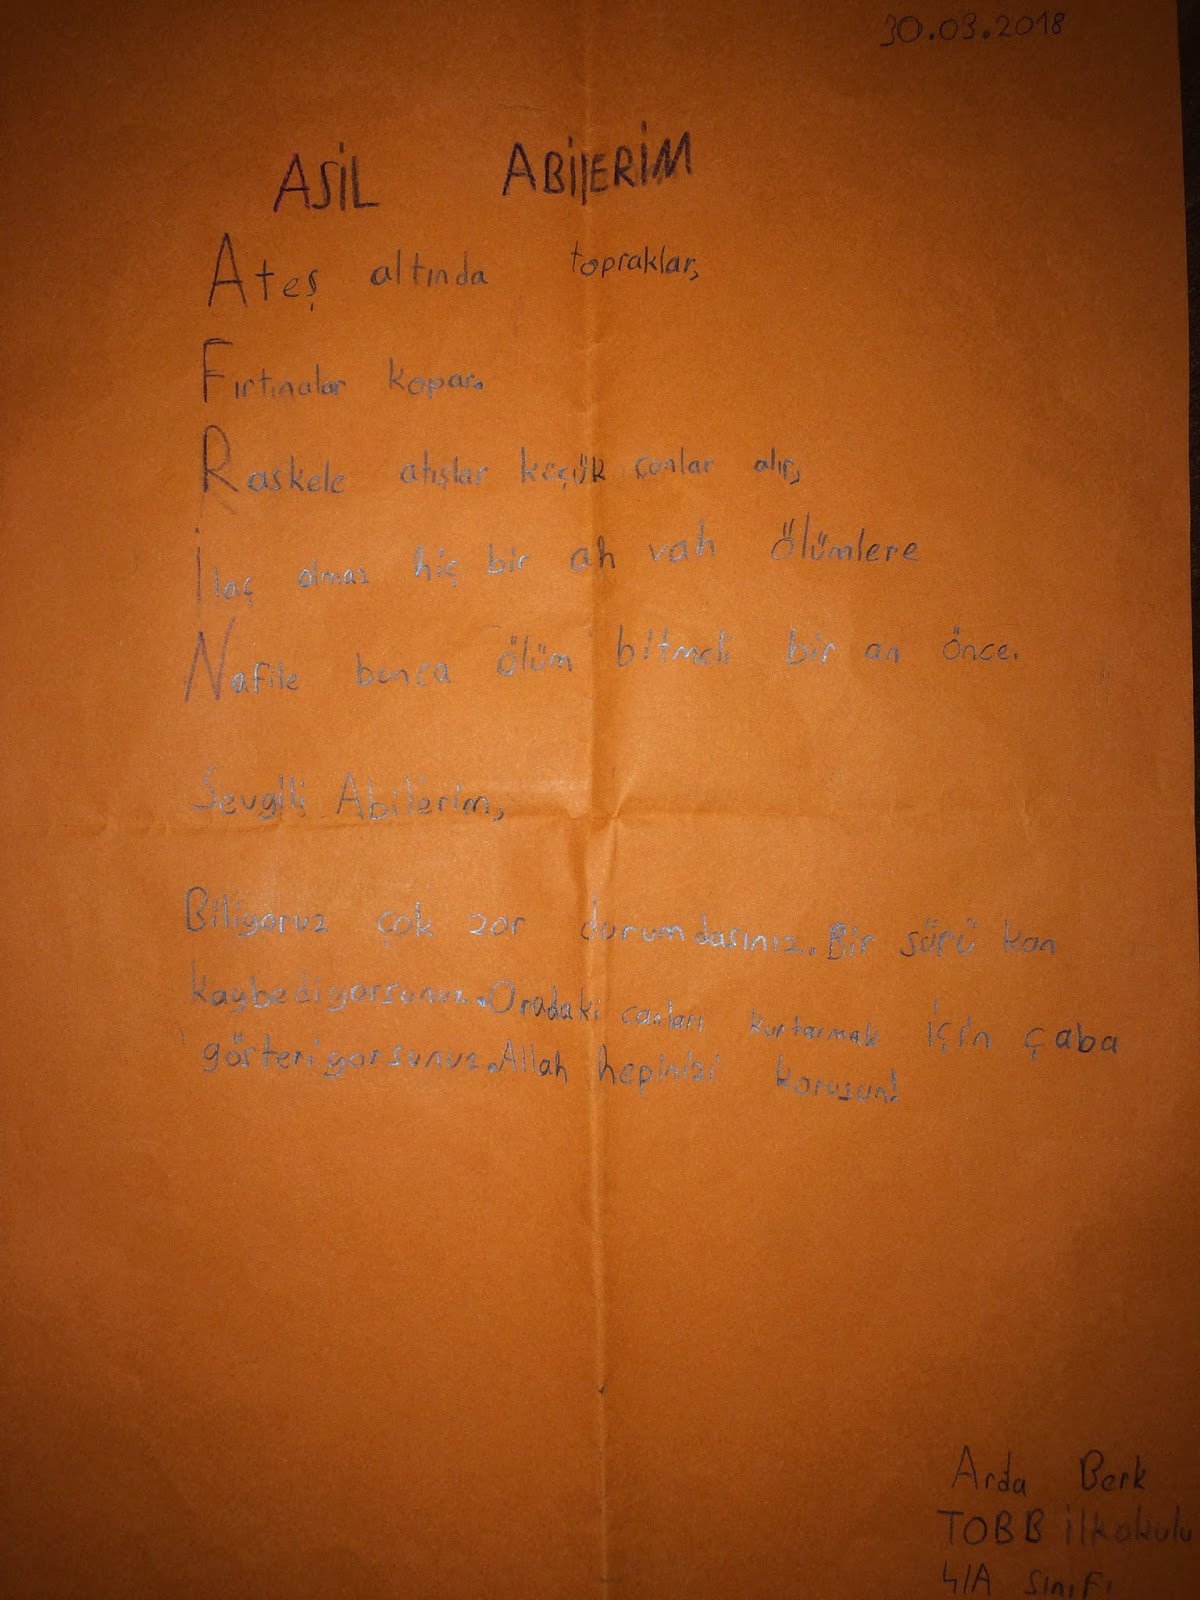 30.03.2018
ASİL ABİlERİM
Ateş altında topraklar,
Fırtınalar kopar.
Raskele atışlar keçük canlar alır,
İlaç olmaz hiç bir ah vah ölümlere
Nafile bunca ölüm bitmeli bir an önce.
Sevgili Abilerim,
Biliyoruz çok zor durumdasınız. Bir sürü kan
kaybediyorsunuz. Oradaki canları kurtarmak için çaba
gösteriyorsunuz. Allah hepinizi korusun!
Arda Berk
TOBB ilkokulu
4/A sınıfı